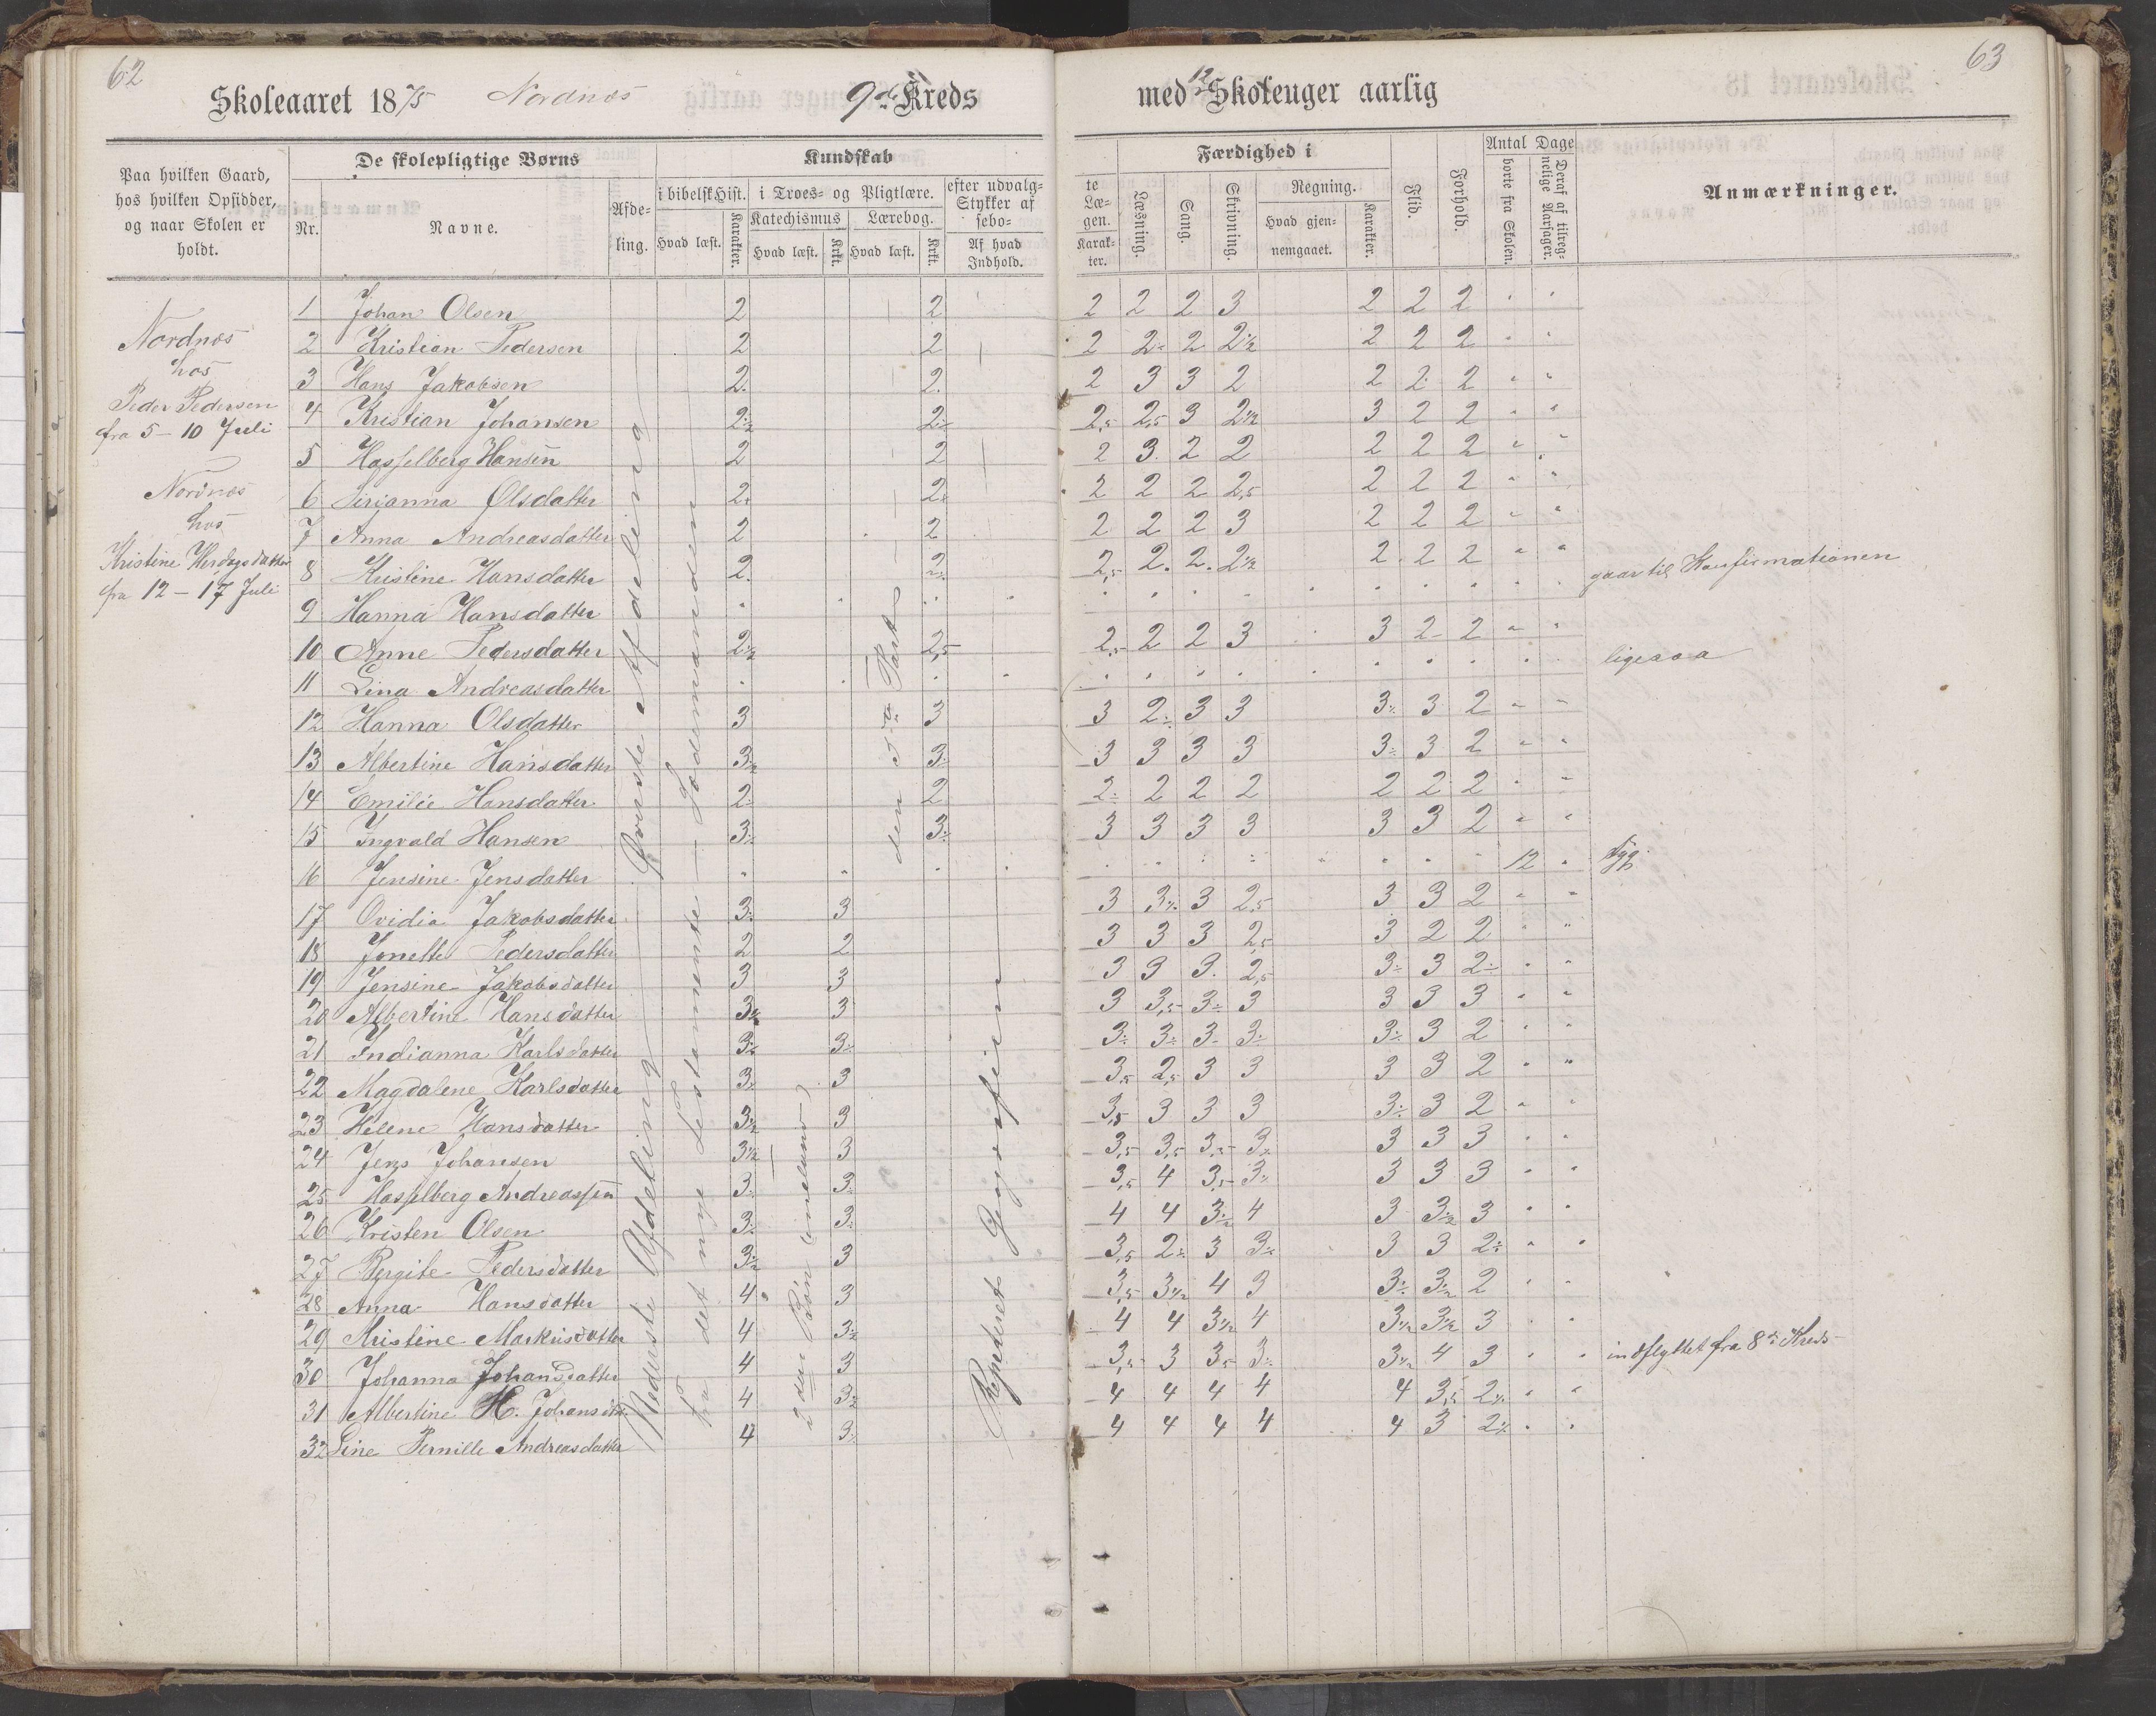 62
Skoleaaret 1875 Nordnes 9de Kreds
Paa hvilken Gaard, hos hvilken Opsidder, og naar Skolen er holdt.
De skolepligtige Børns
Nr.
Navne.
Afdeling.
Kundskab
i bibelsk Hist.
Hvad læst.
Karakter.
i Troes- og Pligtlære.
Katechismus
Hvad læst.
Krkt.
Lærebog.
Hvad læst.
Krkt.
efter udvalg-
Stykker af
sebo-
Af hvad Indhold.
Nordnes
hos
Peder Pedersen
fra 5–10 Juli
Nordnes
hos
Kristine
fra 12–17 Juli
1 Johan Olsen 2 2
2 Kristian Pedersen 2 2
3 Hans Jakobsen 2. 2.
4 Kristian Johansen 2½ 2
5 Hasselberg Hansen 2 2
6 Sirianna Olsdatter 2. 2.
7 Anna Andreasdatter 2 2
8 Kristine Hansdatter 2. 2
9 Hanna Hansdatter
10 Anne Pedersdatter 2½ 2,5
11 Lina Andreasdatter
12 Hanna Olsdatter 3 3
13 Albertine Hansdatter 3 3
14 Emilie Hansdatter 2 2
15 Ingvald Hansen 3 3
16 Jensine Jensdatter
17 Ovidia Jakobsdatter 3 3
18 Jonette Pedersdatter 2 2
19 Jensine Jakobsdatter 3 3
20 Albertine Hansdatter 3½ 3
21 Indianna Karlsdatter 3 3
22 Magdalene Karlsdatter 3 3
23 Helene Hansdatter 3½ 3
24 Jens Johansen 3½ 3
25 Hasselberg Andreassen 3 3
26 Kristen Olsen 3 3
27 Bergite Pedersdatter 3½ 3
28 Anna Hansdatter 4 3
29 Kristine Markusdatter 4 3½
30 Johanna Johansdatter 4 3
31 Albertine H. Johansdtr. 4 3½
32 Line Pernille Andreasdatter 4 3
Øverste Afdeling
Nederste Afdeling
fra det nye Testamente – Sødemanden
den 3die Part
2den Bøn
Repeteret Geografien
63
med 12 Skoleuger aarlig
te Læ-
gen.
Karakter.
Færdighed i
Læsning.
Sang.
Skrivning.
Regning.
Hvad gjennemgaaet.
Karakter.
Flid.
Forhold.
Antal Dage
borte fra Skolen.
Deraf af tilregnelige Aarsager.
Anmærkninger.
2 2 2 3 2 2 2
2 2 2 2½ 2 2 2
2 3 3 2 2 2 2
2,5 2,5 3 2½ 3 2 2
2 3 2 2 2 2 2
2 2 2 2,5 2 2 2
2 2 2 3 2 2 2
2,5 2. 2. 2½ 2 2 2
gaar til Konfirmationen
2,5 2 2 3 3 2 2
ligesaa
3 2 3 3 3 3 2
3 3 3 3 3 3 2
2 2 2 2 2 2 2
3 3 3 3 3 3 2
12 syg
3 3 3 2,5 3 3 2
3 3 3 2,5 3 2 2
3 3 3. 2,5 3 3 2
3 3,5 3 3 3 3 3
3 3 3 3 3 3 2
3,5 2,5 3 3 3 3 2
3,5 3 3 3 3 3 2
3,5 3,5 3,5 3 3 3 3
3,5 4 3,5 3 3 3 3
4 4 3½ 4 3 3½ 3
3,5 2 3 3 3 3 2
3,5 3½ 4 3 3 3½ 2
4 4 3½ 4 3½ 3½ 3
3,5 3 3,5 3 3½ 4 3 indflyttet fra 8de Kreds
4 4 4 4 4 3,5 2
4 4 4 4 4 3 2